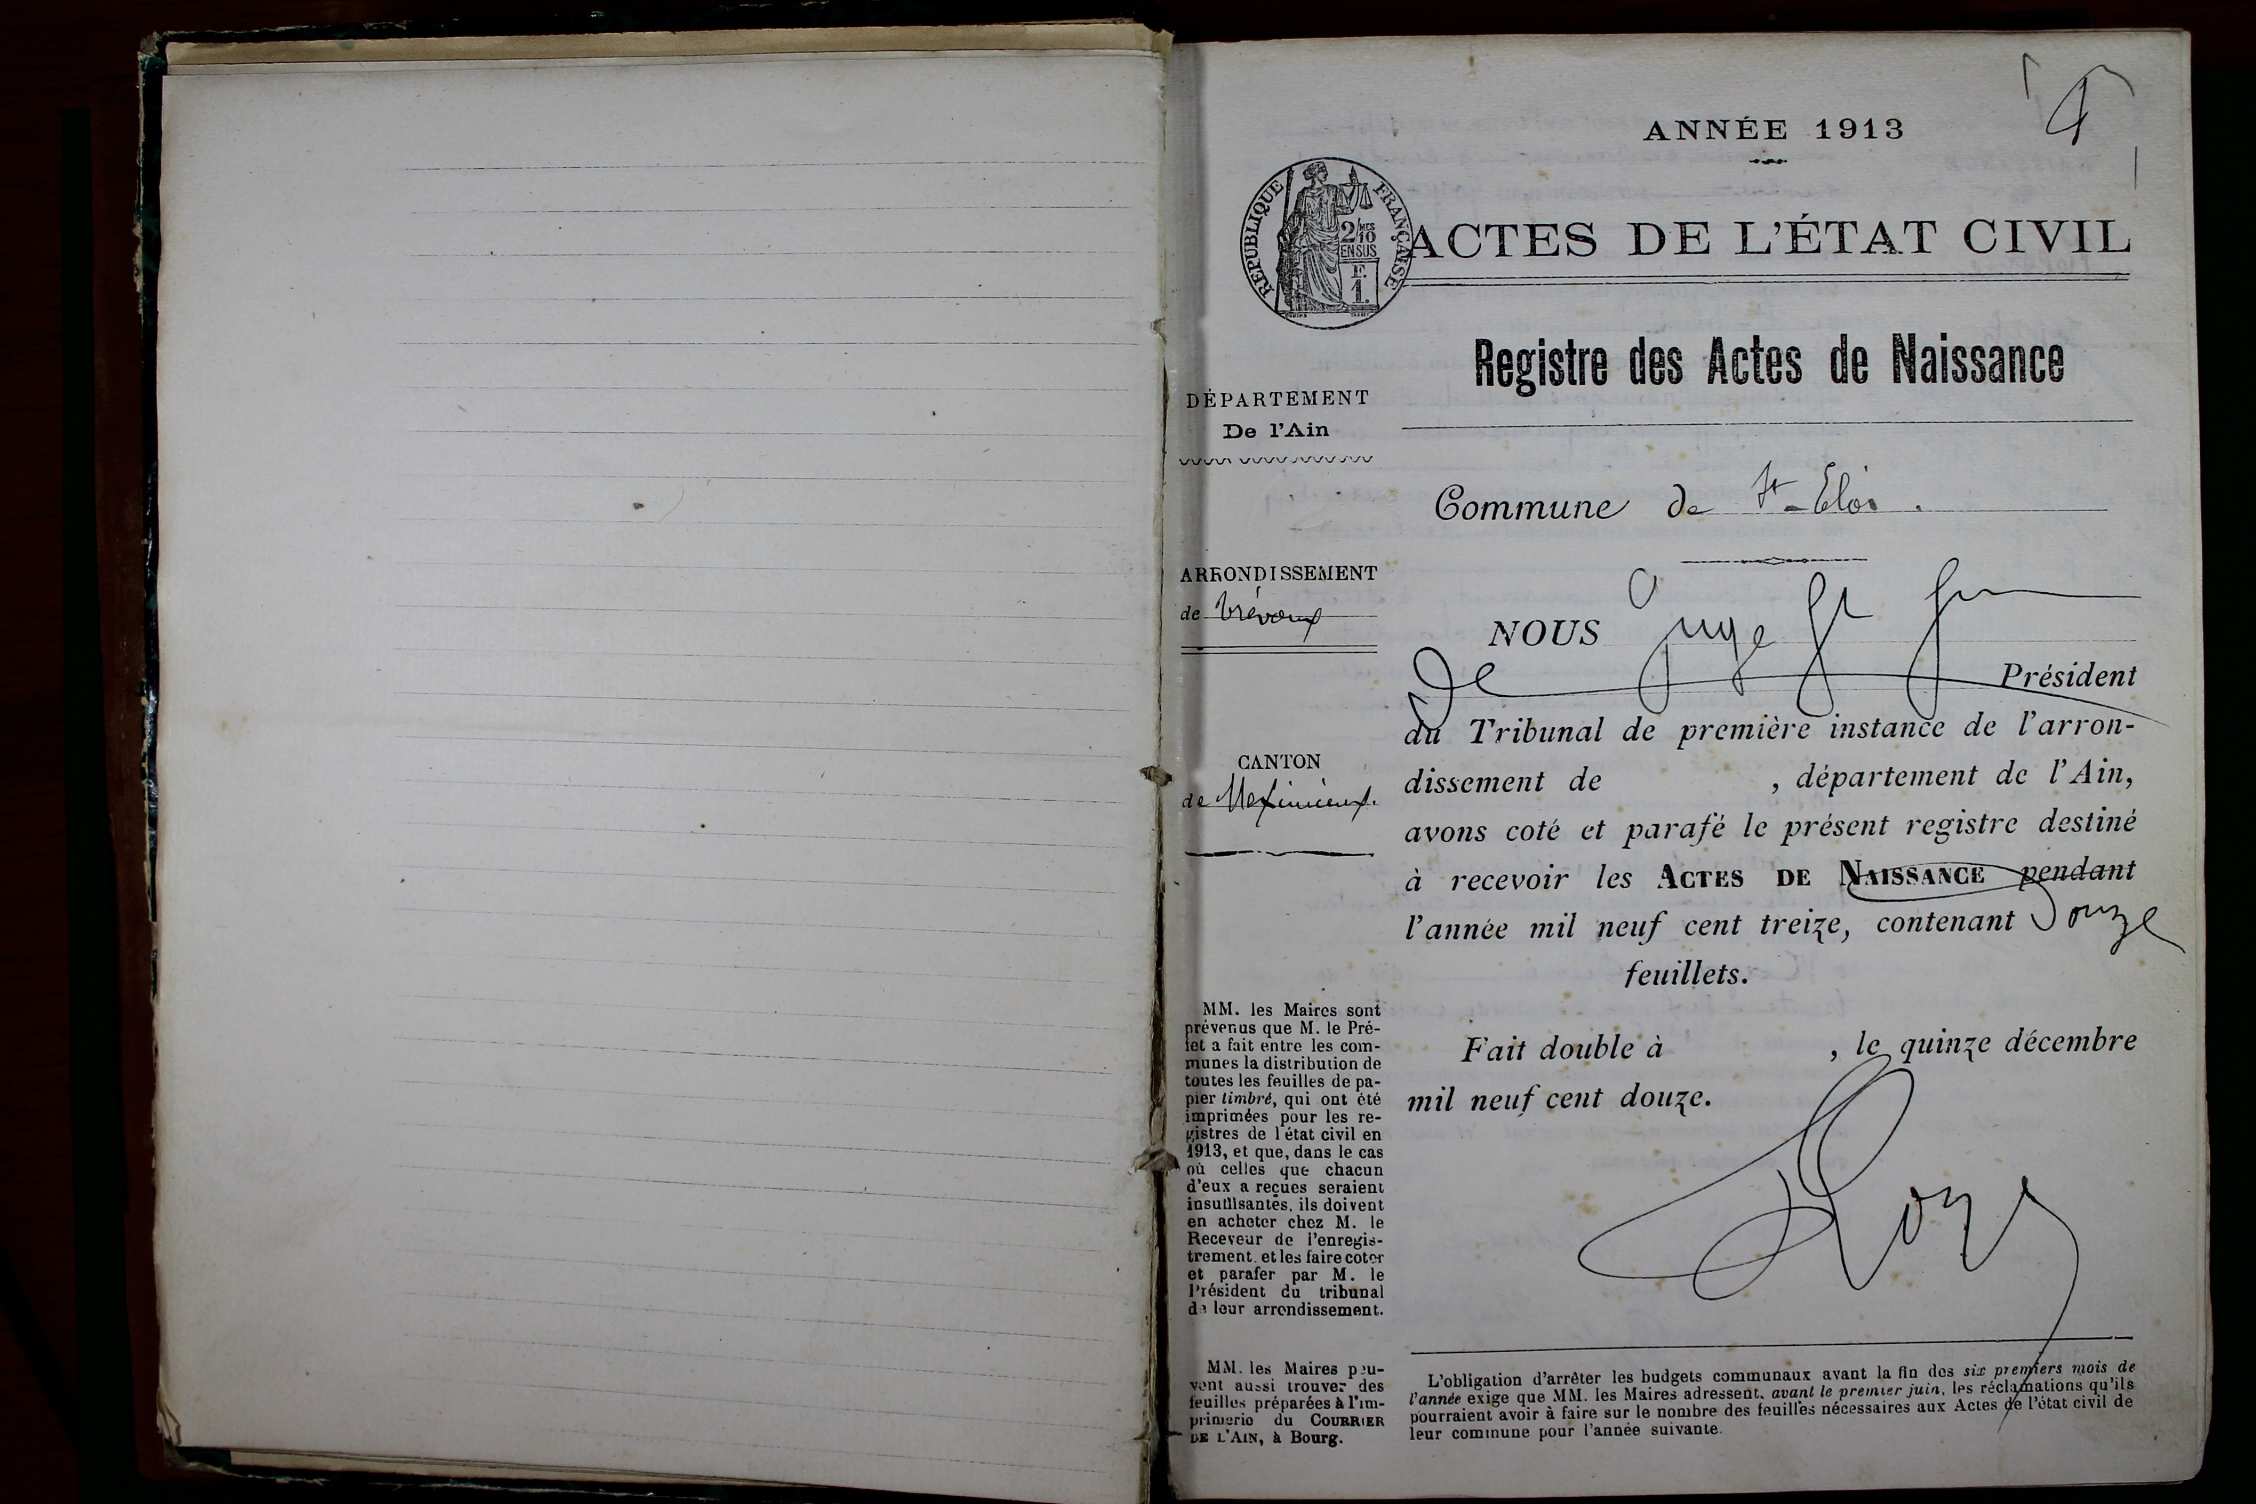 ANNÉE 1913
RÉPUBLIQUE FRANÇAISE
2/MES 10
EN SUS
F.
1.
ACTES DE L'ÉTAT CIVIL
Registre des Actes de Naissance
DÉPARTEMENT
De l'Ain
Commune de St-Eloi.
ARRONDISSEMENT
de Trévoux
NOUS Juge
de Président
du Tribunal de première instance de l'arron-
dissement de , département de l'Ain,
avons coté et parafé le présent registre destiné
à recevoir les ACTES DE NAISSANCE pendant
l'année mil neuf cent treize, contenant Douze
feuillets.
Fait double à , le quinze décembre
mil neuf cent douze.
CANTON
de Meximieux.
MM. les Maires sont
prévenus que M. le Pré-
fet a fait entre les com-
munes la distribution de
toutes les feuilles de pa-
pier timbré, qui ont été
imprimées pour les re-
gistres de l'état civil en
1913, et que, dans le cas
où celles que chacun
d'eux a reçues seraient
insuffisantes, ils doivent
en acheter chez M. le
Receveur de l'enregis-
trement, et les faire coter
et parafer par M. le
Président du tribunal
de leur arrondissement.
MM. les Maires peu-
vent aussi trouver des
feuilles préparées à l'im-
primerie du COURRIER
DE L'AIN, à Bourg.
L'obligation d'arrêter les budgets communaux avant la fin des six premiers mois de
l'année exige que MM. les Maires adressent, avant le premier juin, les réclamations qu'ils
pourraient avoir à faire sur le nombre des feuilles nécessaires aux Actes de l'état civil de
leur commune pour l'année suivante.